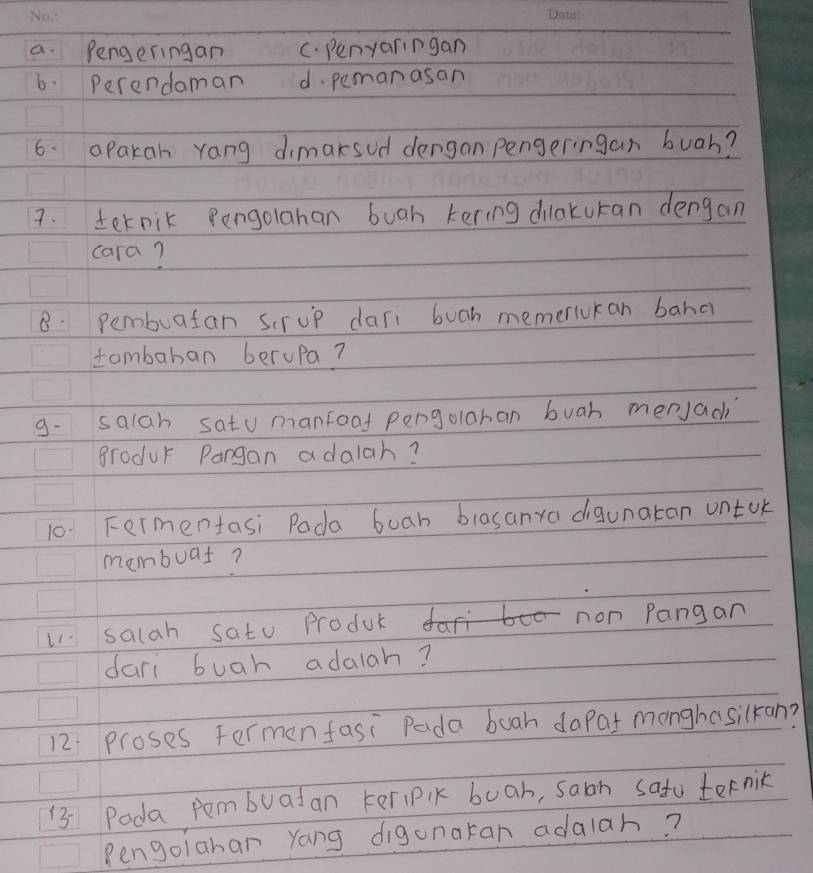 No.: Date:
a. Pengeringan c. Penyaringan
b. Perendaman d. pemanasan
6. apakah yang dimaksud dengan pengeringan buah?
7. teknik Pengolahan buah kering dilakukan dengan
cara?
8. pembuatan sirup dari buah memerlukan baha
tambahan berupa?
9- salah satu manfaat pengolahan buah menjadi
Produk Pangan adalah?
10. Fermentasi Pada buah biasanya digunakan untuk
membuat?
11. salah satu Produk dari bua non Pangan
dari buah adalah?
12. proses Fermentasi Pada buah dapat menghasilkan?
13- Pada Pembuatan keripik buah, salah satu teknik
Pengolahan yang digunakan adalah?